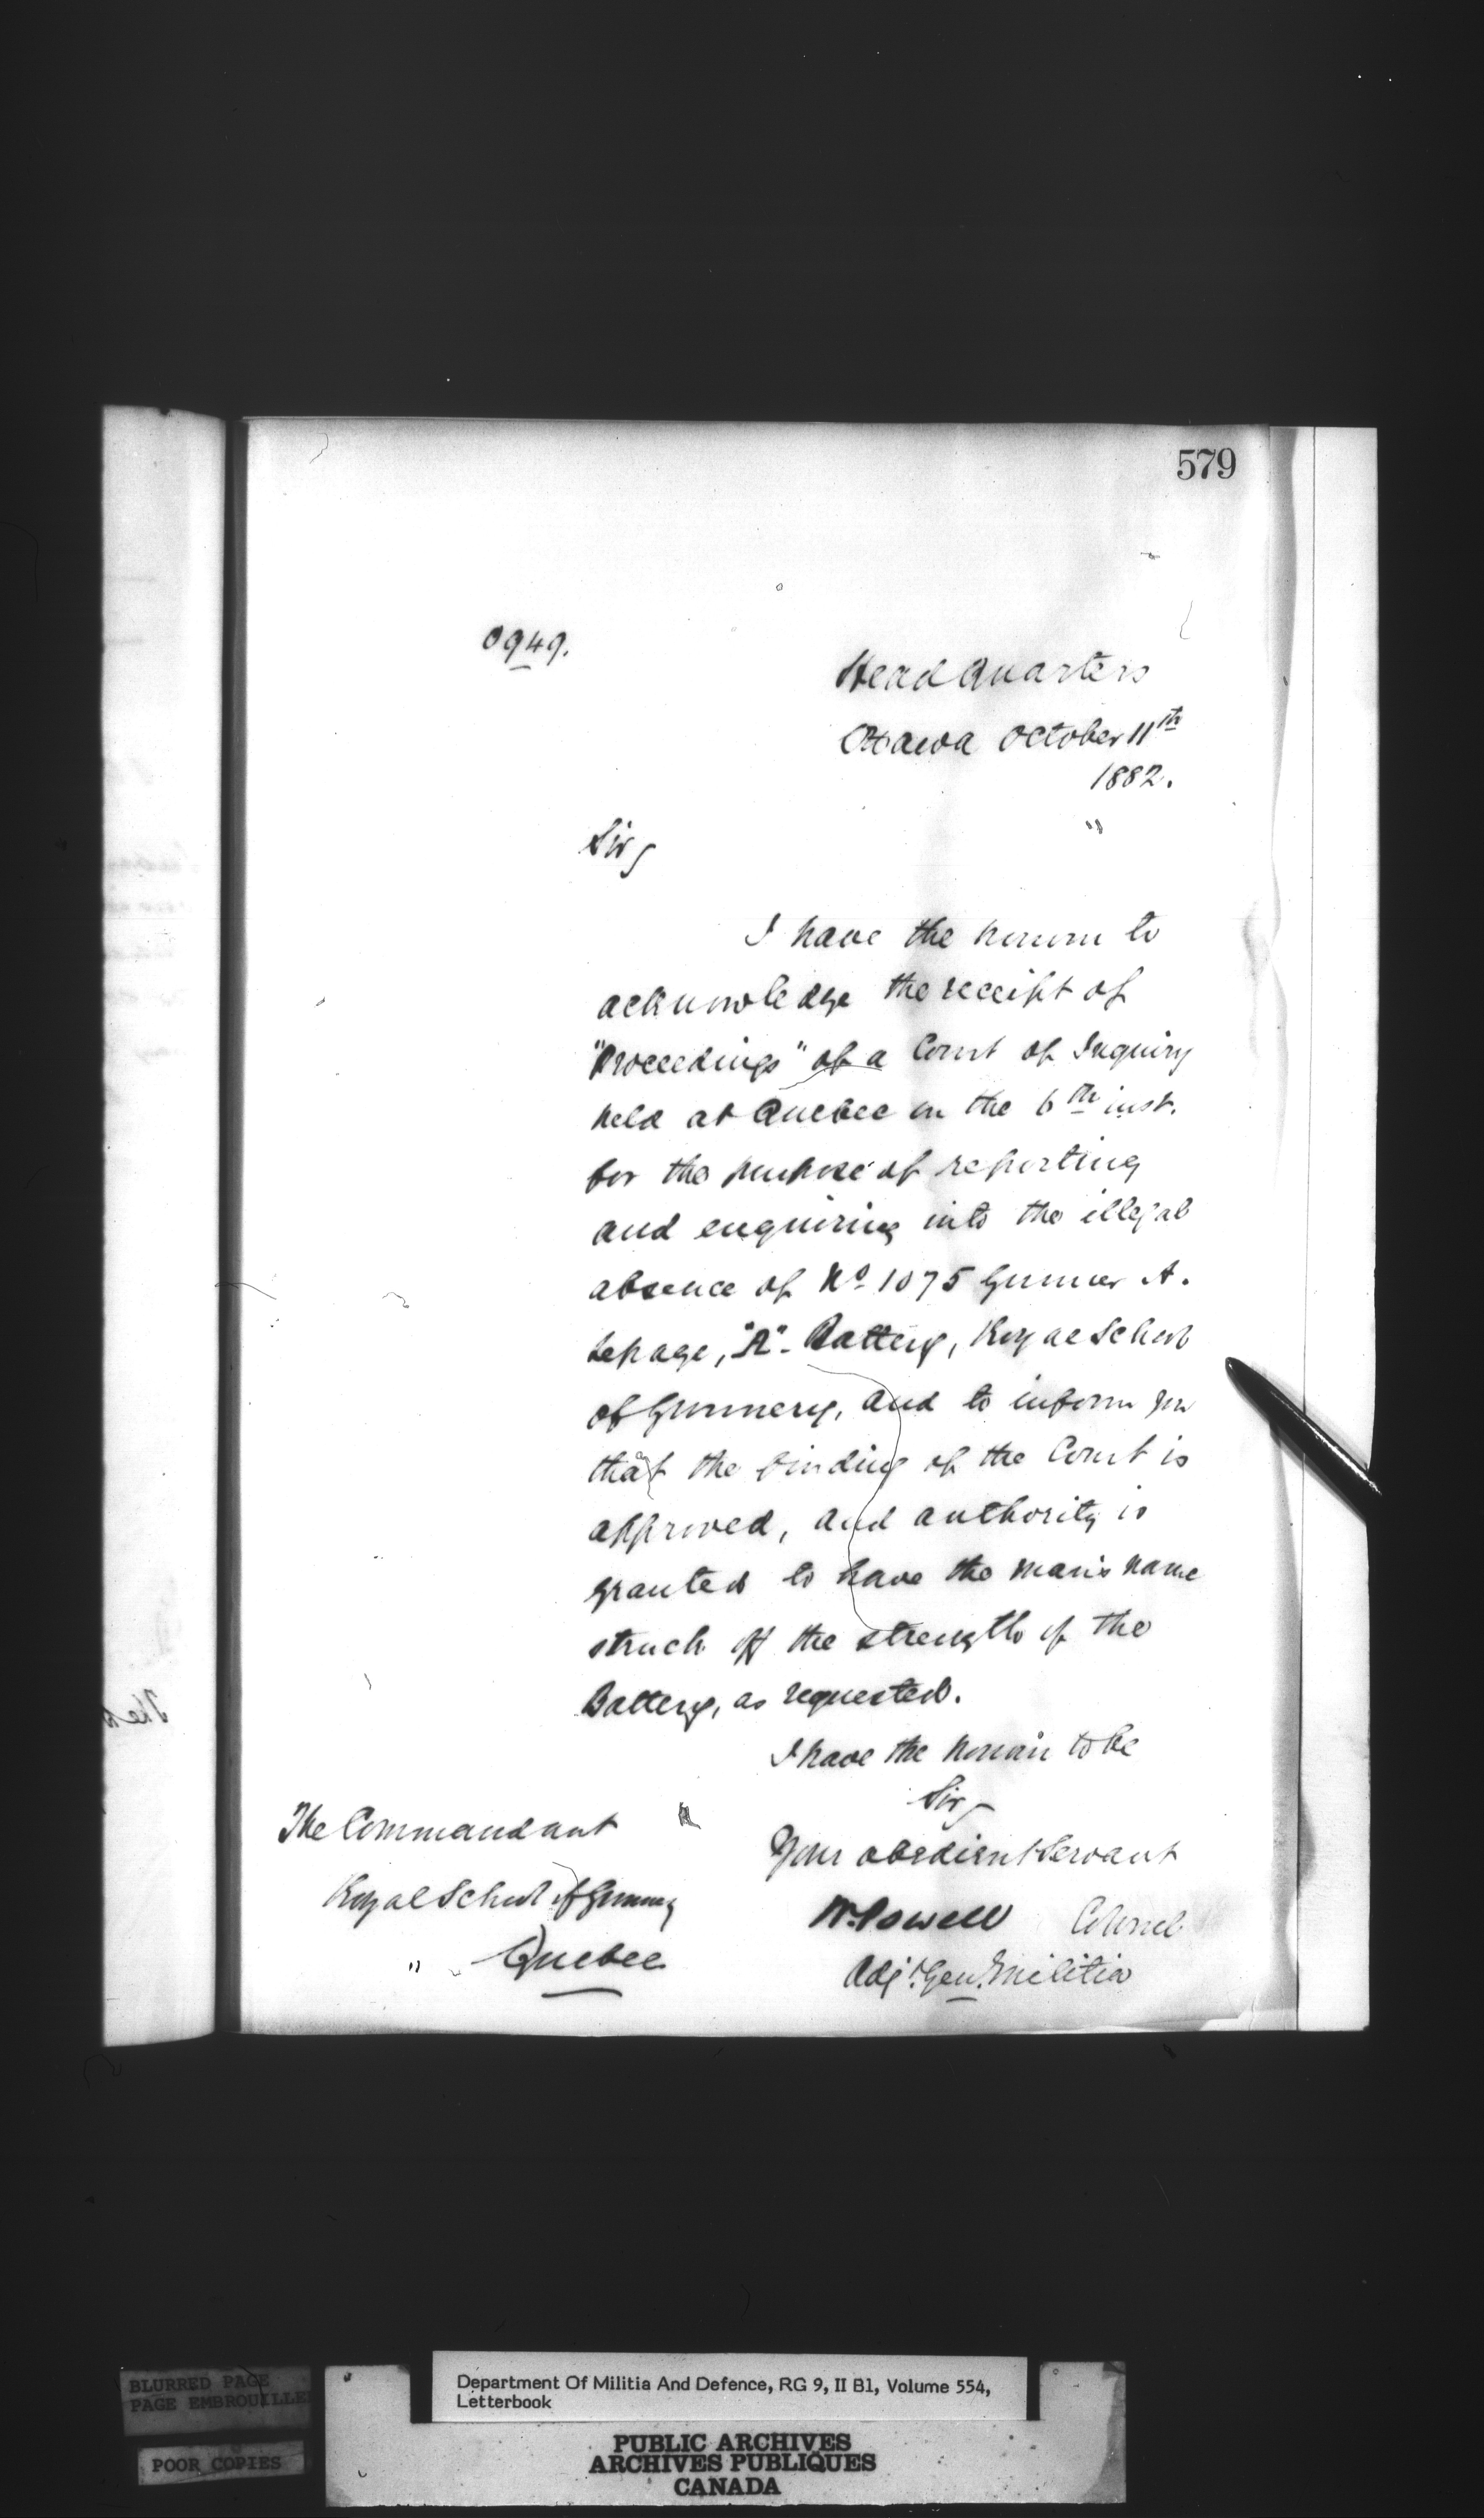 579
0949.
Head Quarters
Ottawa October 11th
1882.
"
Sir,
I have the honour to
acknowledge the receipt of
"Proceedings" of a Court of Inquiry
held at Quebec on the 6th inst.
for the purpose of reporting
and enquiring into the illegal
absence of No. 1075 Gunner A.
Lepage, "A" - Battery, Royal School
of Gunnery, and to inform you
that the finding of the Court is
approved, and authority is
granted to have the man's name
struck off the strength of the
Battery, as requested.
I have the honour to be
Sir,
Your obedient Servant
W. Powell Colonel
Adjt. Gen. Militia
The Commandant
Royal School of Gunnery
" Quebec
BLURRED PAGE
PAGE EMBROUILLE
POOR COPIES
Department Of Militia And Defence, RG 9, II B1, Volume 554,
Letterbook
PUBLIC ARCHIVES
ARCHIVES PUBLIQUES
CANADA